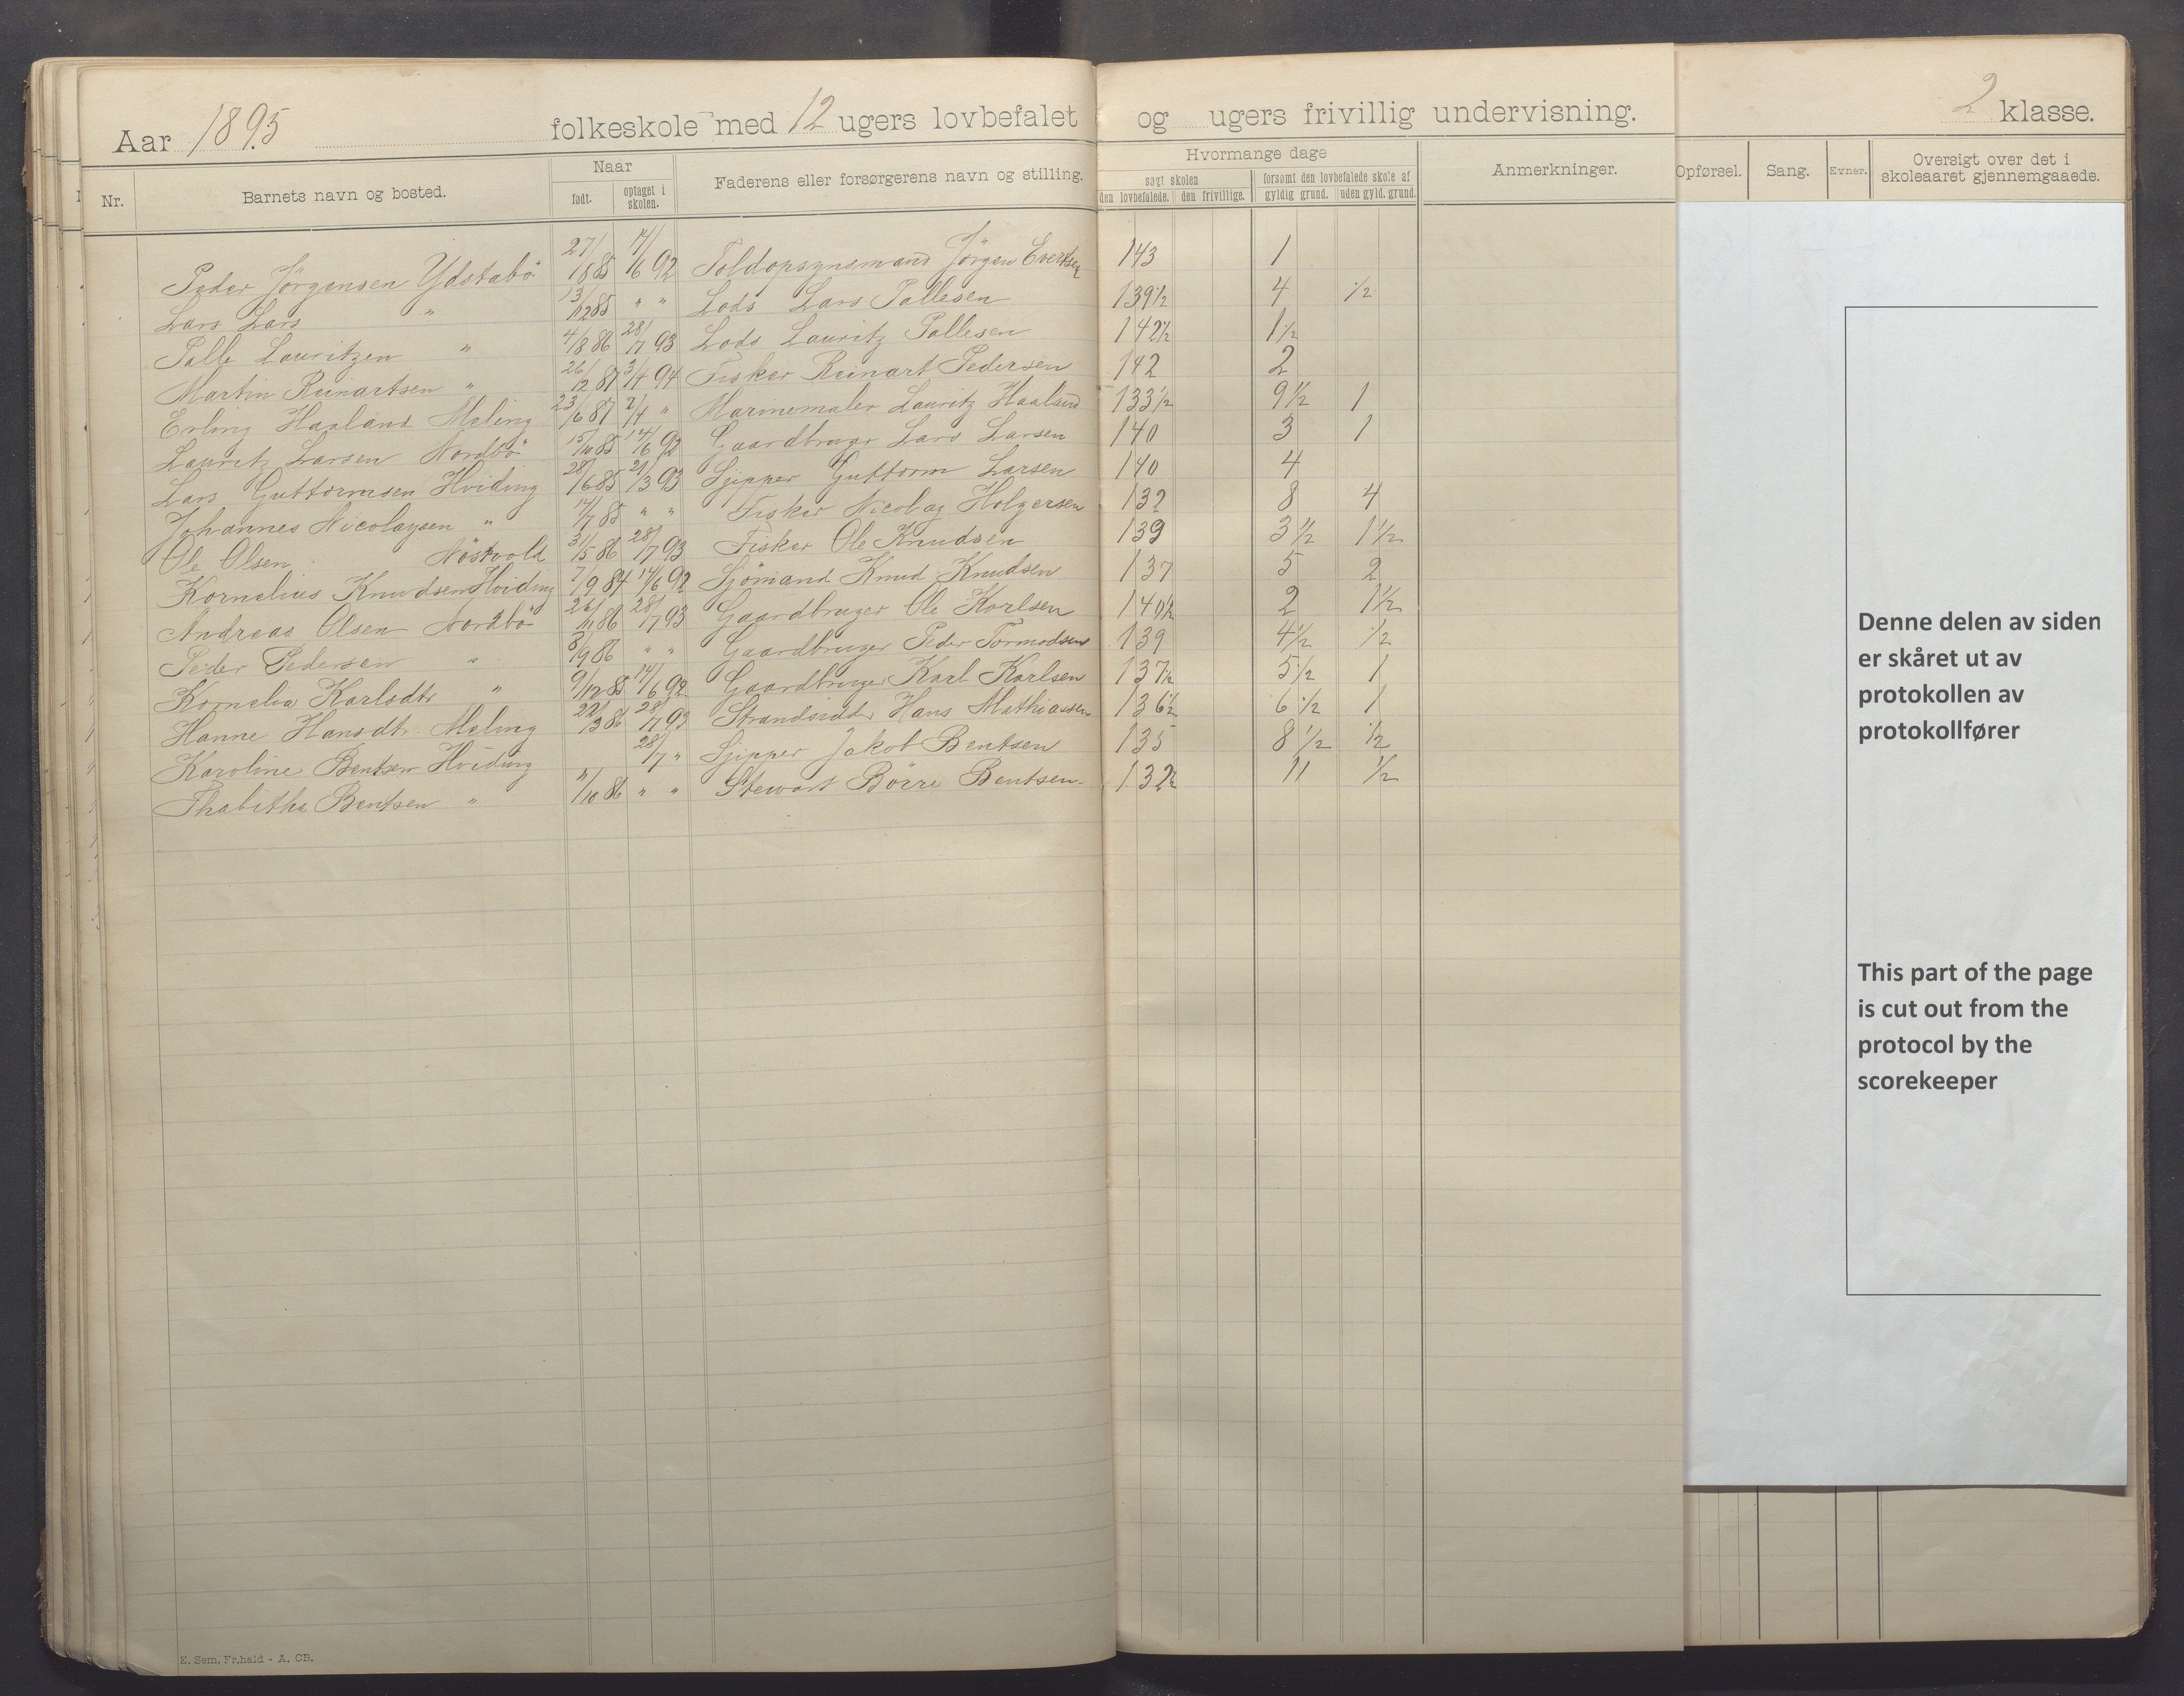 Aar 1895 folkeskole med 12 ugers lovbefalet og ugers frivillig undervisning. 2 klasse.
Nr. Barnets navn og bosted. Naar født. optaget i skolen. Faderens eller forsørgerens navn og stilling. Hvormange dage søgt skolen den lovbefalede. den frivillige. forsømt den lovbefalede skole af gyldig grund. uden gyld. grund. Anmerkninger. Opførsel. Sang. Evner. Oversigt over det i skoleaaret gjennemgaaede.
Peder Jörgensen Ydstabö 27/8 85 14/6 92 Toldopsynsmand Jörgen Evertsen 143 1
Lars Lars " 13/12 85 " " Lods Lars Pallesen 139 1/2 4 1/2
Palle Lauritzen " 4/8 86 28/7 93 Lods Lauritz Pallesen 142 1/2 1 1/2
Martin Reinartsen " 26/12 87 3/4 94 Fisker Reinart Pedersen 142 2
Erling Haaland Meling 23/6 87 2/4 " Marinemaler Lauritz Haaland 133 1/2 9 1/2 1
Lauritz Larsen Nordbö 15/10 85 14/6 92 Gaardbruger Lars Larsen 140 3 1
Lars Guttormsen Hviding 28/6 85 21/3 93 Sjipper Guttorm Larsen 140 4
Johannes Nicolaysen " 14/7 85 " " Fisker Nicolay Holgersen 132 8 4
Ole Olsen Nöstvold 31/5 86 28/7 93 Fisker Ole Knudsen 139 3 1/2 1 1/2
Kornelius Knudsen Hviding 7/9 84 14/6 92 Sjömand Knud Knudsen 137 5 2
Andreas Olsen Nordbö 26/11 86 28/7 93 Gaardbruger Ole Karlsen 140 1/2 2 1 1/2
Peder Pedersen " 8/9 86 " " Gaardbruger Peder Tormodsen 139 4 1/2 1/2
Kornelia Karlsdtr " 9/12 85 14/6 92 Gaardbruger Karl Karlsen 137 1/2 5 1/2 1
Hanne Hansdtr. Meling 22/3 86 28/7 93 Strandsidder Hans Mathiassen 136 1/2 6 1/2 1
Karoline Bentsen Hviding 28/7 " Sjipper Jakob Bentsen 135 8 1/2 1/2
Thabitha Bentsen " /10 86 " " Stewart Börre Bentsen 132 1/2 11 1/2
Denne delen av siden
er skåret ut av
protokollen av
protokollfører
This part of the page
is cut out from the
protocol by the
scorekeeper
E. Sem, Fr.hald - A. CB.